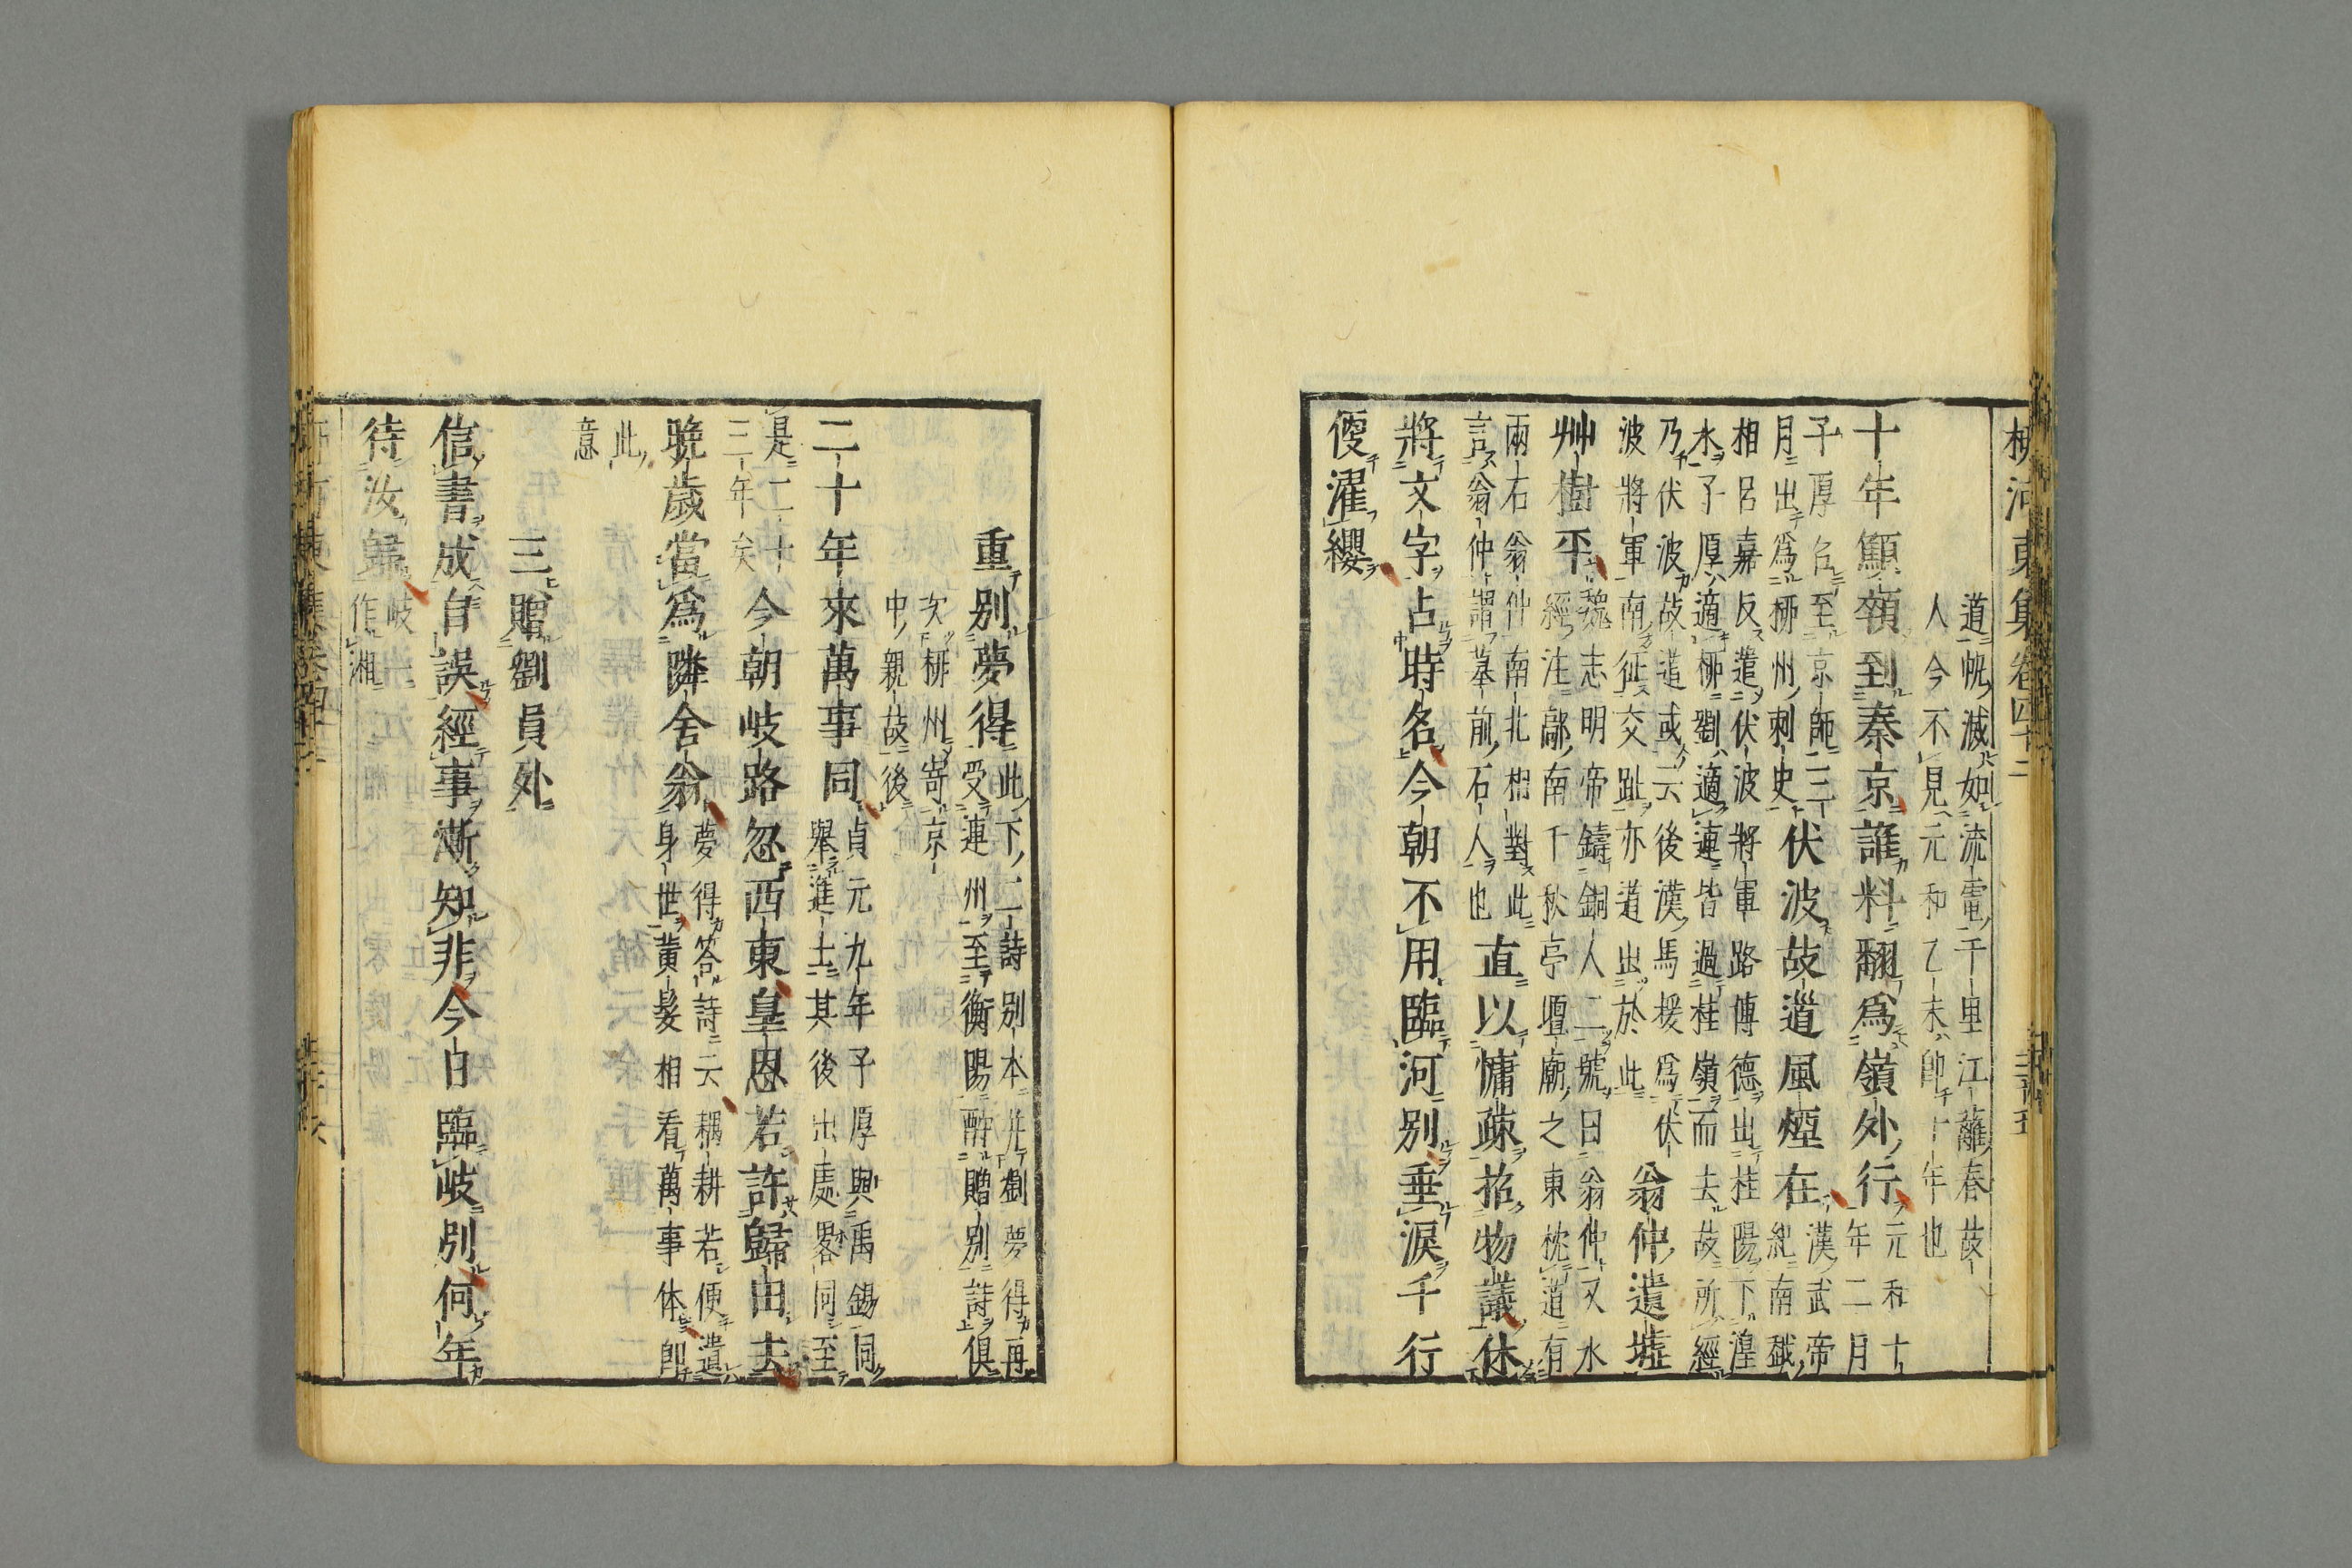 柳河東集卷四十二
道帆滅如流電千里江蘺春故
人今不見元和乙未帥十年也
十年顦顇到秦京誰料翻爲嶺外行元和十
年二月
子厚召至京師三
月出爲柳州刺史伏波故道風煙在漢武帝
紀南粵
相呂嘉反遣伏波將軍路傅德出桂陽下湟
水子厚適柳劉適連皆過桂嶺而去故所經
乃伏波故道或云後漢馬援爲伏
波將軍南征交趾亦道出於此翁仲遺墟
艸樹平魏志明帝鑄銅人二號曰翁仲又水
經注鄗南千秋亭壇廟之東枕道有
兩石翁仲南北相對此
言翁仲謂墓前石人也直以慵疎招物議休
將文字占時名今朝不用臨河別垂淚千行
便濯纓
重別夢得此下二詩別本幷劉夢得再
受連州至衡陽酧贈別詩俱
次柳州寄京
中親故後
二十年來萬事同貞元九年子厚與禹錫同
舉進士其後出處畧同至
是二十
三年矣今朝岐路忽西東皇恩若許歸田去
晚歲當爲隣舍翁夢得答詩云耦耕若便遺
身世黃髮相看萬事休卽
此
意
三贈劉員外
信書成自誤經事漸知非今日臨岐別何年
待汝歸岐一
作湘